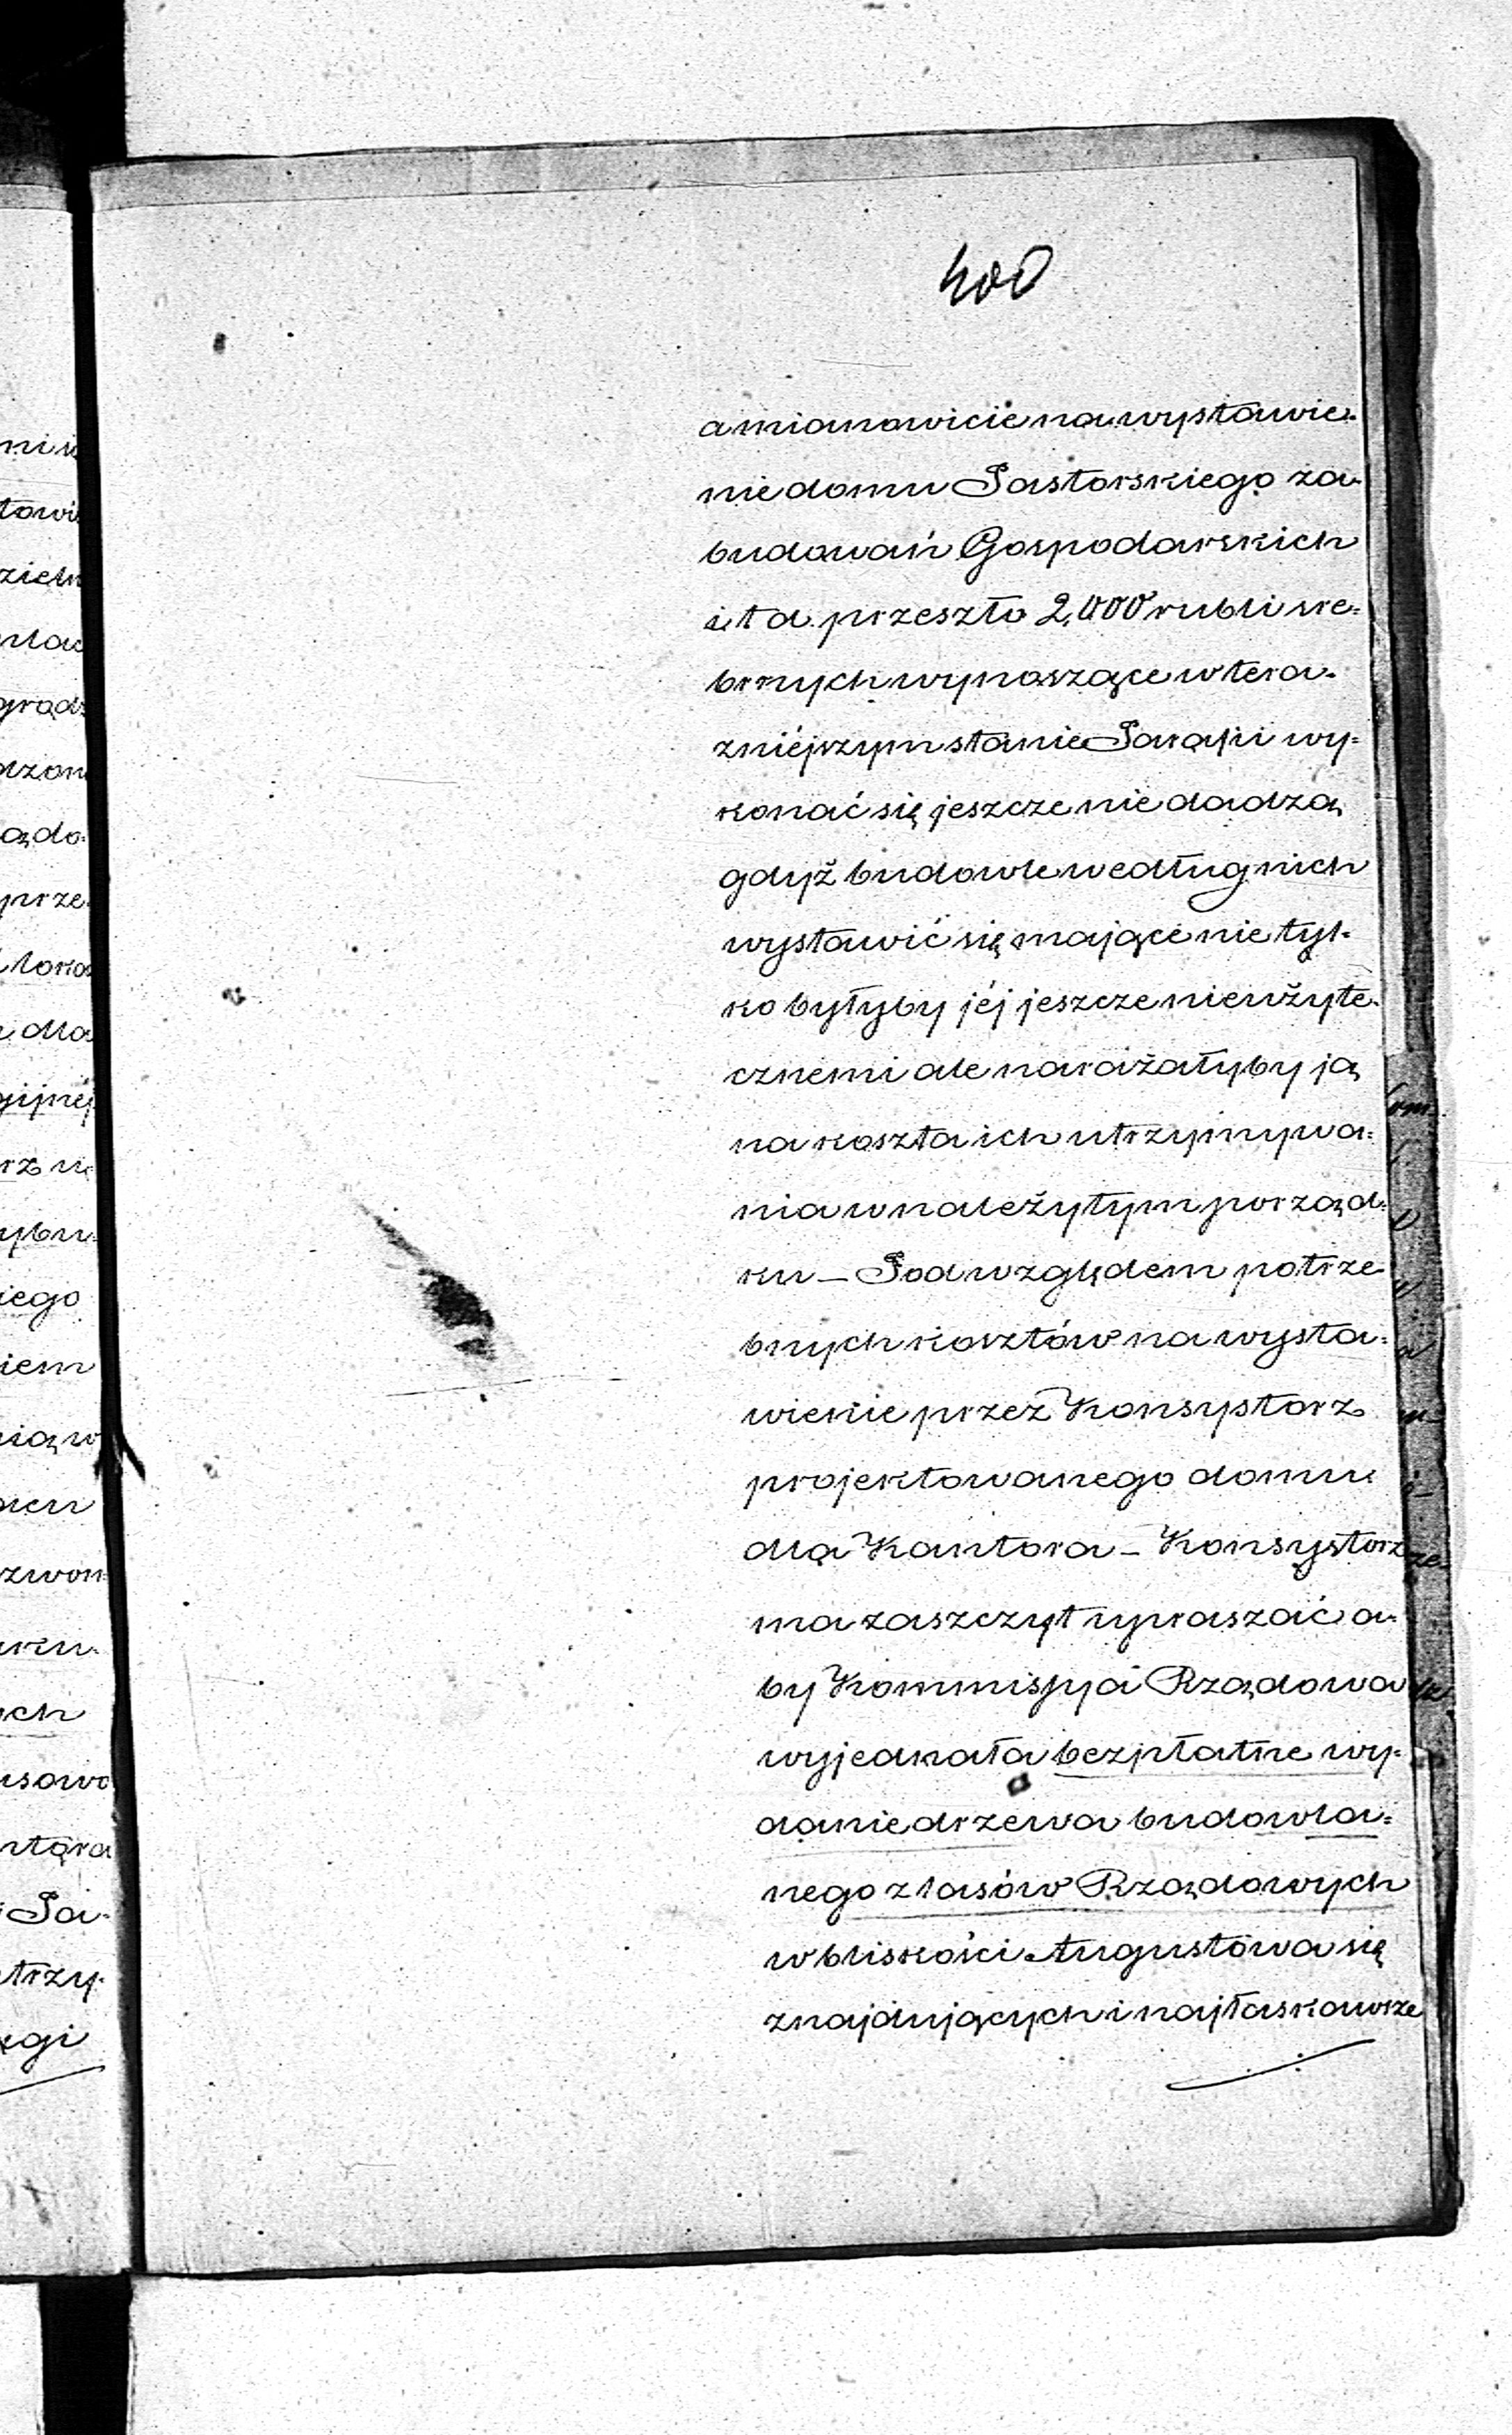 400
a mianowicie na wystawie-
nie domu Pastorskiego za-
budowań Gospodarskich
i t d. przeszło 2,000 rubli sre-
brnych wynoszące w tera-
zniéjszym stanie Parafii wy-
konać się jeszcze nie dadzą
gdyż budowle według nich
wystawić się mające nie tyl-
ko byłyby jéj jeszcze nieużyte-
cznemi ale narażałyby ją
na koszta ich utrzymywa-
nia w należytym porząd-
ku – Pod względem potrze-
bnych kosztów na wysta-
wienie przez Konsystorz
projektowanego domu
dla Kantora – Konsystorz
ma zaszczyt upraszać a-
by Kommissya Rządowa
wyjednała bezpłatne wy-
danie drzewa budowla-
nego z lasów Rządowych
w bliskości Augustowa się
znajdujących i najłaskawsze